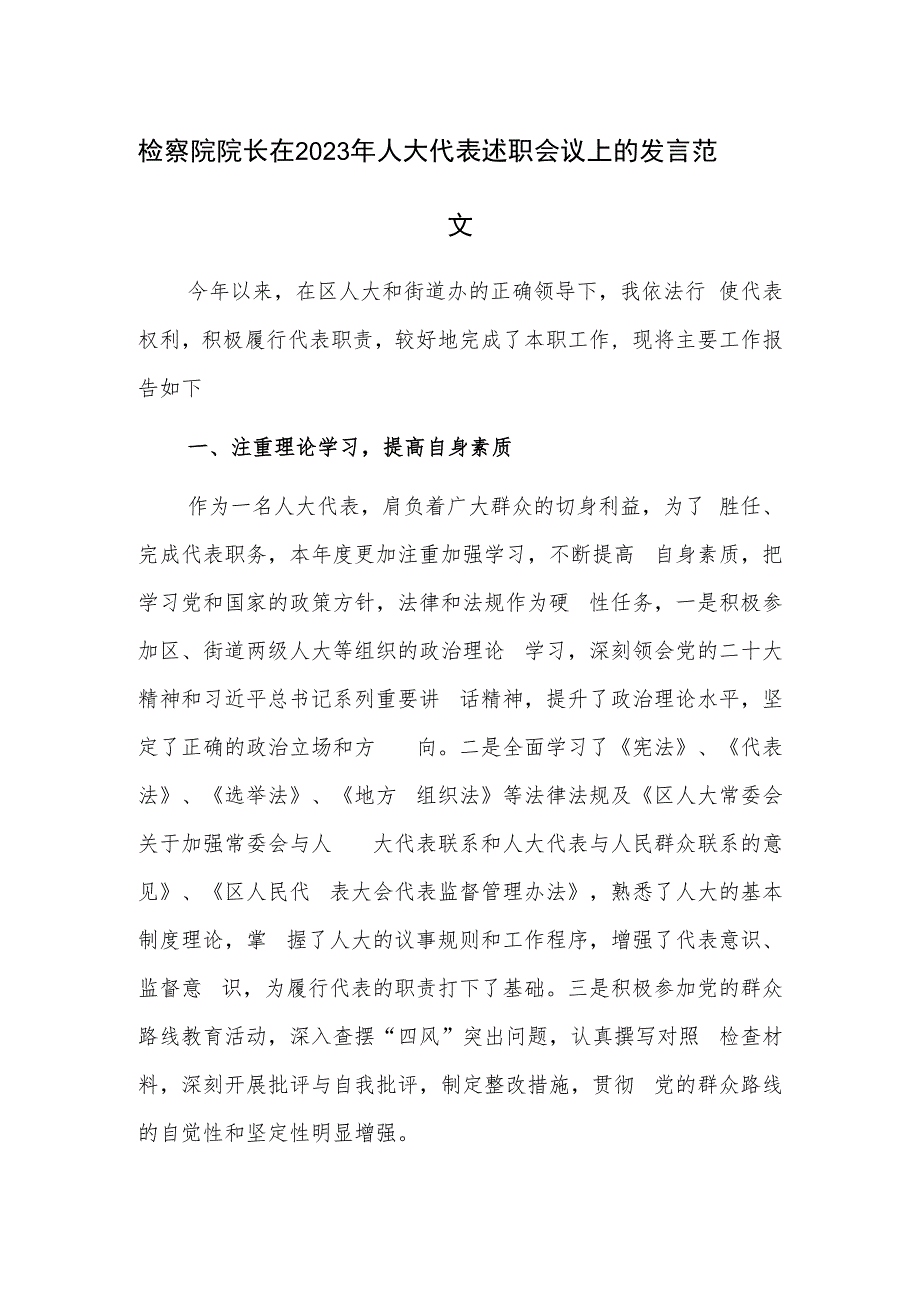 检察院院长在2023年人大代表述职会议上的发言范
文
今年以来，在区人大和街道办的正确领导下，我依法行 使代表
权利，积极履行代表职责，较好地完成了本职工作, 现将主要工作报
告如下
一、注重理论学习，提高自身素质
作为一名人大代表，肩负着广大群众的切身利益，为了 胜任、
完成代表职务，本年度更加注重加强学习，不断提高 自身素质，把
学习党和国家的政策方针，法律和法规作为硬 性任务，一是积极参
加区、街道两级人大等组织的政治理论 学习，深刻领会党的二十大
精神和习近平总书记系列重要讲 话精神，提升了政治理论水平，坚
定了正确的政治立场和方 向。二是全面学习了《宪法》、《代表
法》、《选举法》、《地方 组织法》等法律法规及《区人大常委会
关于加强常委会与人 大代表联系和人大代表与人民群众联系的意
见》、《区人民代 表大会代表监督管理办法》，熟悉了人大的基本
制度理论，掌 握了人大的议事规则和工作程序，增强了代表意识、
监督意 识，为履行代表的职责打下了基础。三是积极参加党的群众
路线教育活动，深入查摆“四风”突出问题，认真撰写对照 检查材
料，深刻开展批评与自我批评，制定整改措施，贯彻 党的群众路线
的自觉性和坚定性明显增强。